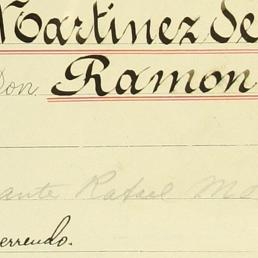 Martinez de
Don Ramon
ante Rafael Mo
errendo.